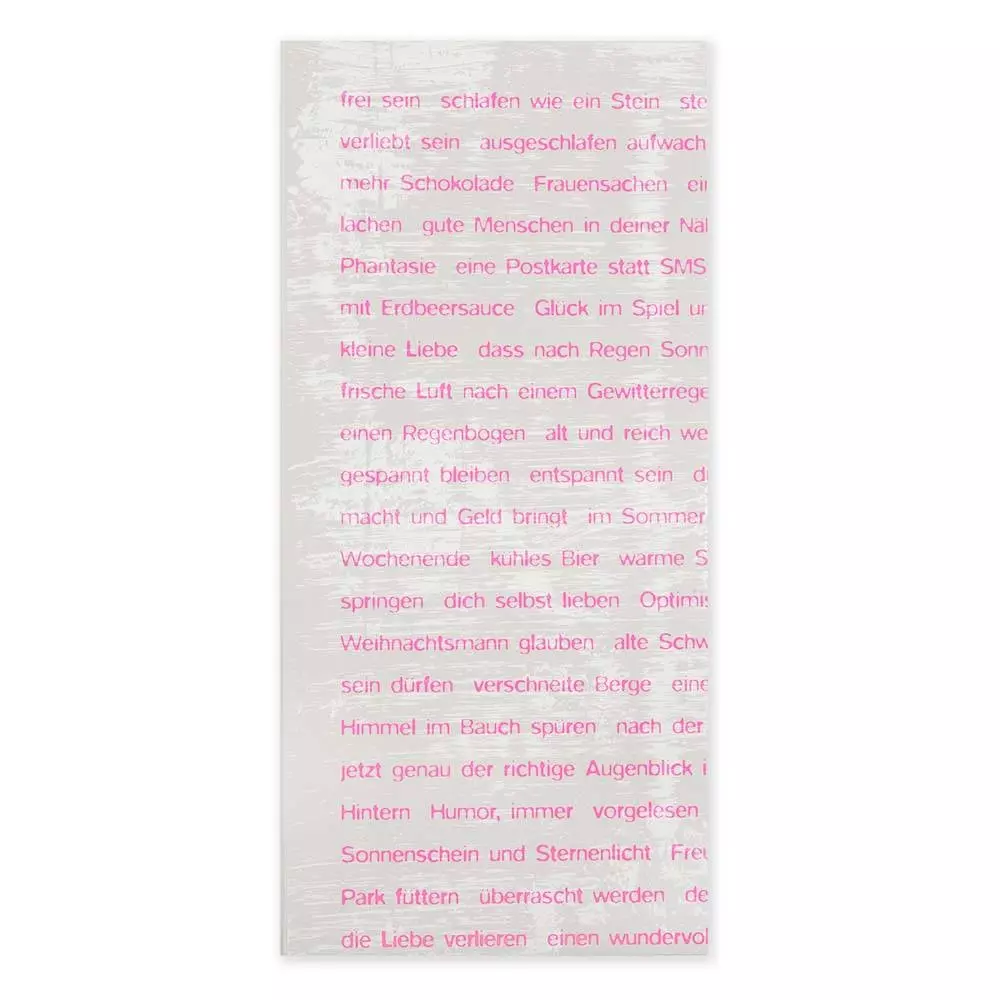 frei sein schlafen wie ein Stein ste
verliebt sein ausgeschlafen aufwach
mehr Schokolade Frauensachen ei
lachen gute Menschen in deiner Nä
Phantasie eine Postkarte statt SMS
mit Erdbeersauce Glück im Spiel ur
kleine Liebe dass nach Regen Sonn
frische Luft nach einem Gewitterrege
einen Regenbogen alt und reich we
gespannt bleiben entspannt sein d
macht und Geld bringt im Sommer
Wochenende kühles Bier warme S
springen dich selbst lieben Optimis
Weihnachtsmann glauben alte Schw
sein dürfen verschneite Berge eine
Himmel im Bauch spüren nach der
jetzt genau der richtige Augenblick i
Hintern Humor, immer vorgelesen
Sonnenschein und Sternenlicht Freu
Park füttern überrascht werden de
die Liebe verlieren einen wundervol